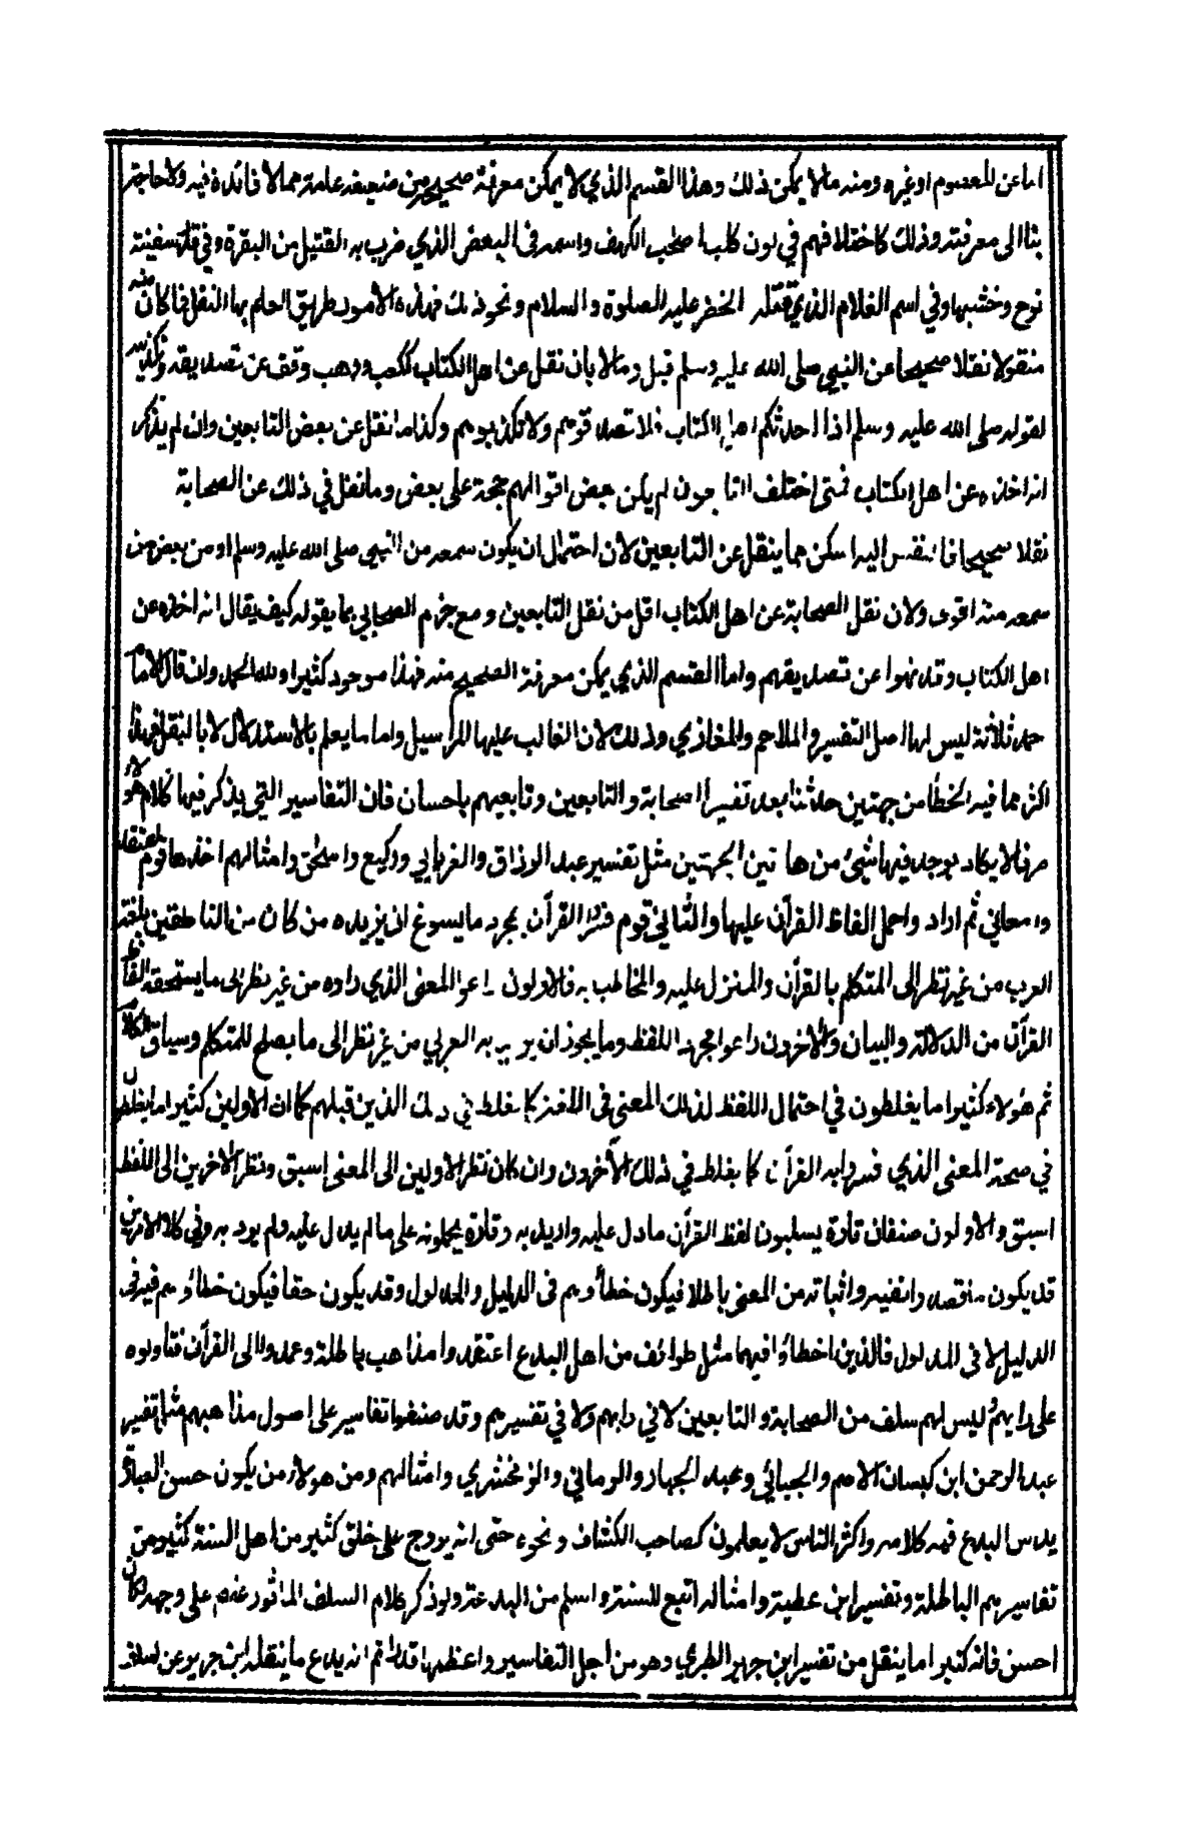 اما عن المعصوم او غيره ومنه مالا يمكن ذلك وهذا القسم الذي لا يمكن معرفة صحيحه من ضعيفه عامته مما لا فائدة فيه ولا حاجة
بنا الى معرفته وذلك كاختلافهم في لون كلب اصحب الكهف واسمه وفى البعض الذي ضرب به القتيل من البقرة وفي قدر سفينة
نوح وخشبها وفي اسم الغلام الذي قتله الخضر عليه الصلوة والسلام ونحو ذلك فهذه الامور طريق العلم بها النقل فما كان منه
منقولا نقلا صحيحا عن النبي صلى الله عليه وسلم قبل ومالا بان نقل عن اهل الكتاب ككعب ووهب وقف عن تصديقه وتكذيبه
لقوله صلى الله عليه وسلم اذا احدثكم اهل الكتاب فلا تصدقوهم ولا تكذبوهم وكذا ما نقل عن بعض التابعين وان لم يذكر
انه اخذه عن اهل الكتاب فمتى اختلف التابعون لم يكن بعض اقوالهم حجة على بعض وما نقل في ذلك عن الصحابة
نقلا صحيحا فالنفس اليه اسكن مما ينقل عن التابعين لان احتمال ان يكون سمعه من النبي صلى الله عليه وسلم او من بعض من
سمعه منه اقوى ولان نقل الصحابة عن اهل الكتاب اقل من نقل التابعين ومع جزم الصحابي بما يقوله كيف يقال انه اخذه عن
اهل الكتاب وقد نهوا عن تصديقهم واما القسم الذي يمكن معرفة الصحيح منه فهذا موجود كثيرا ولله الحمد وان قال الامام
احمد ثلاثة ليس لها اصل التفسير والملاحم والمغازي وذلك لان الغالب عليها المراسيل واما ما يعلم بالاستدلال لا بالنقل فهذا
اكثر مما فيه الخطأ من جهتين حدثتا بعد تفسير الصحابة والتابعين وتابعيهم باحسان فان التفاسير التي يذكر فيها كلام هؤلاء
صرفا لا يكاد يوجد فيها شيئ من هاتين الجهتين مثل تفسير عبد الرزاق والفريابي ووكيع واسحق وامثالهم احدها قوم اعتقدوا
وا معاني ثم اراد واحمل الفاظ القرآن عليها والثاني قوم فسروا القرآن بمجرد ما يسوغ ان يريده من كان من الناطقين بلغة
العرب من غير نظر الى المتكلم بالقرآن والمنزل عليه والمخاطب به فالاولون راعوا المعنى الذي راوه من غير نظر الى ما يستحقه الفاظ
القرآن من الدلالة والبيان والآخرون راعوا مجرد اللفظ وما يجوز ان يريد به العربي من غير نظر الى ما يصلح للمتكلم وسياق الكلام
ثم هؤلاء كثيرا ما يغلطون في احتمال اللفظ لذلك المعنى فى اللغة كما يغلط في ذلك الذين قبلهم كما ان الاولين كثيرا ما يغلطون
في صحة المعنى الذي فسروا به القرآن كما يغلط في ذلك الآخرون وان كان نظر الاولين الى المعنى اسبق ونظر الاخرين الى اللفظ
اسبق والاولون صنفان تارة يسلبون لفظ القرآن ما دل عليه واريد به وتارة يحملونه على ما لم يدل عليه ولم يرد به وفي كلا الامرين
قد يكون ما قصدوا نفيه واثباته من المعنى باطلا فيكون خطأوهم فى الدليل والمدلول وقد يكون حقا فيكون خطأوهم فيه فى
الدليل لا فى المدلول فالذين اخطأوا فيهما مثل طوائف من اهل البدع اعتقدوا مذاهب باطلة وعمدوا الى القرآن فتاولوه
على رايهم وليس لهم سلف من الصحابة والتابعين لا في رايهم ولا في تفسيرهم وقد صنفوا تفاسير على اصول مذاهبهم مثل تفسير
عبد الرحمن ابن كيسان الاصم والجبائي وعبد الجبار والرماني والزمخشري وامثالهم ومن هولاء من يكون حسن العبارة
يدس البدع فى كلامه واكثر الناس لا يعلمون كصاحب الكشاف ونحوه حتى انه يروج على خلق كثير من اهل السنة كثير من
تفاسيرهم الباطلة وتفسير ابن عطية وامثاله اتبع للسنة واسلم من البدعة ولو ذكر كلام السلف الماثور عنهم على وجهه لكان
احسن فانه كثيرا ما ينقل من تفسير ابن جرير الطبري وهو من اجل التفاسير واعظمها قدرا ثم انه يدع ما ينقله ابن جرير عن السلف